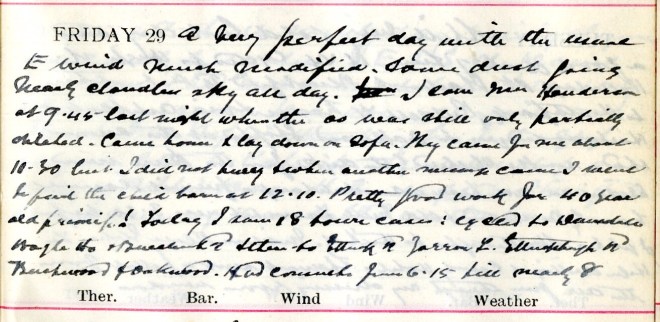 FRIDAY 29 A very perfect day with the usual
E wind much modified. Some dust going
Nearly cloudless sky all day. I saw Mrs Henderson
at 9.45 last night when the os was still only partially
dilated. Came home & lay down on Sofa. They came for me about
10-30 but I did not hurry & when another message came I went
to find the child born at 12.10. Pretty good work for 40 year
old primip! Today I saw 18 home cases: cycled to
Ho & then to
& Oakwood. Had consults from 6.15 till nearly 8
Ther. Bar. Wind Weather